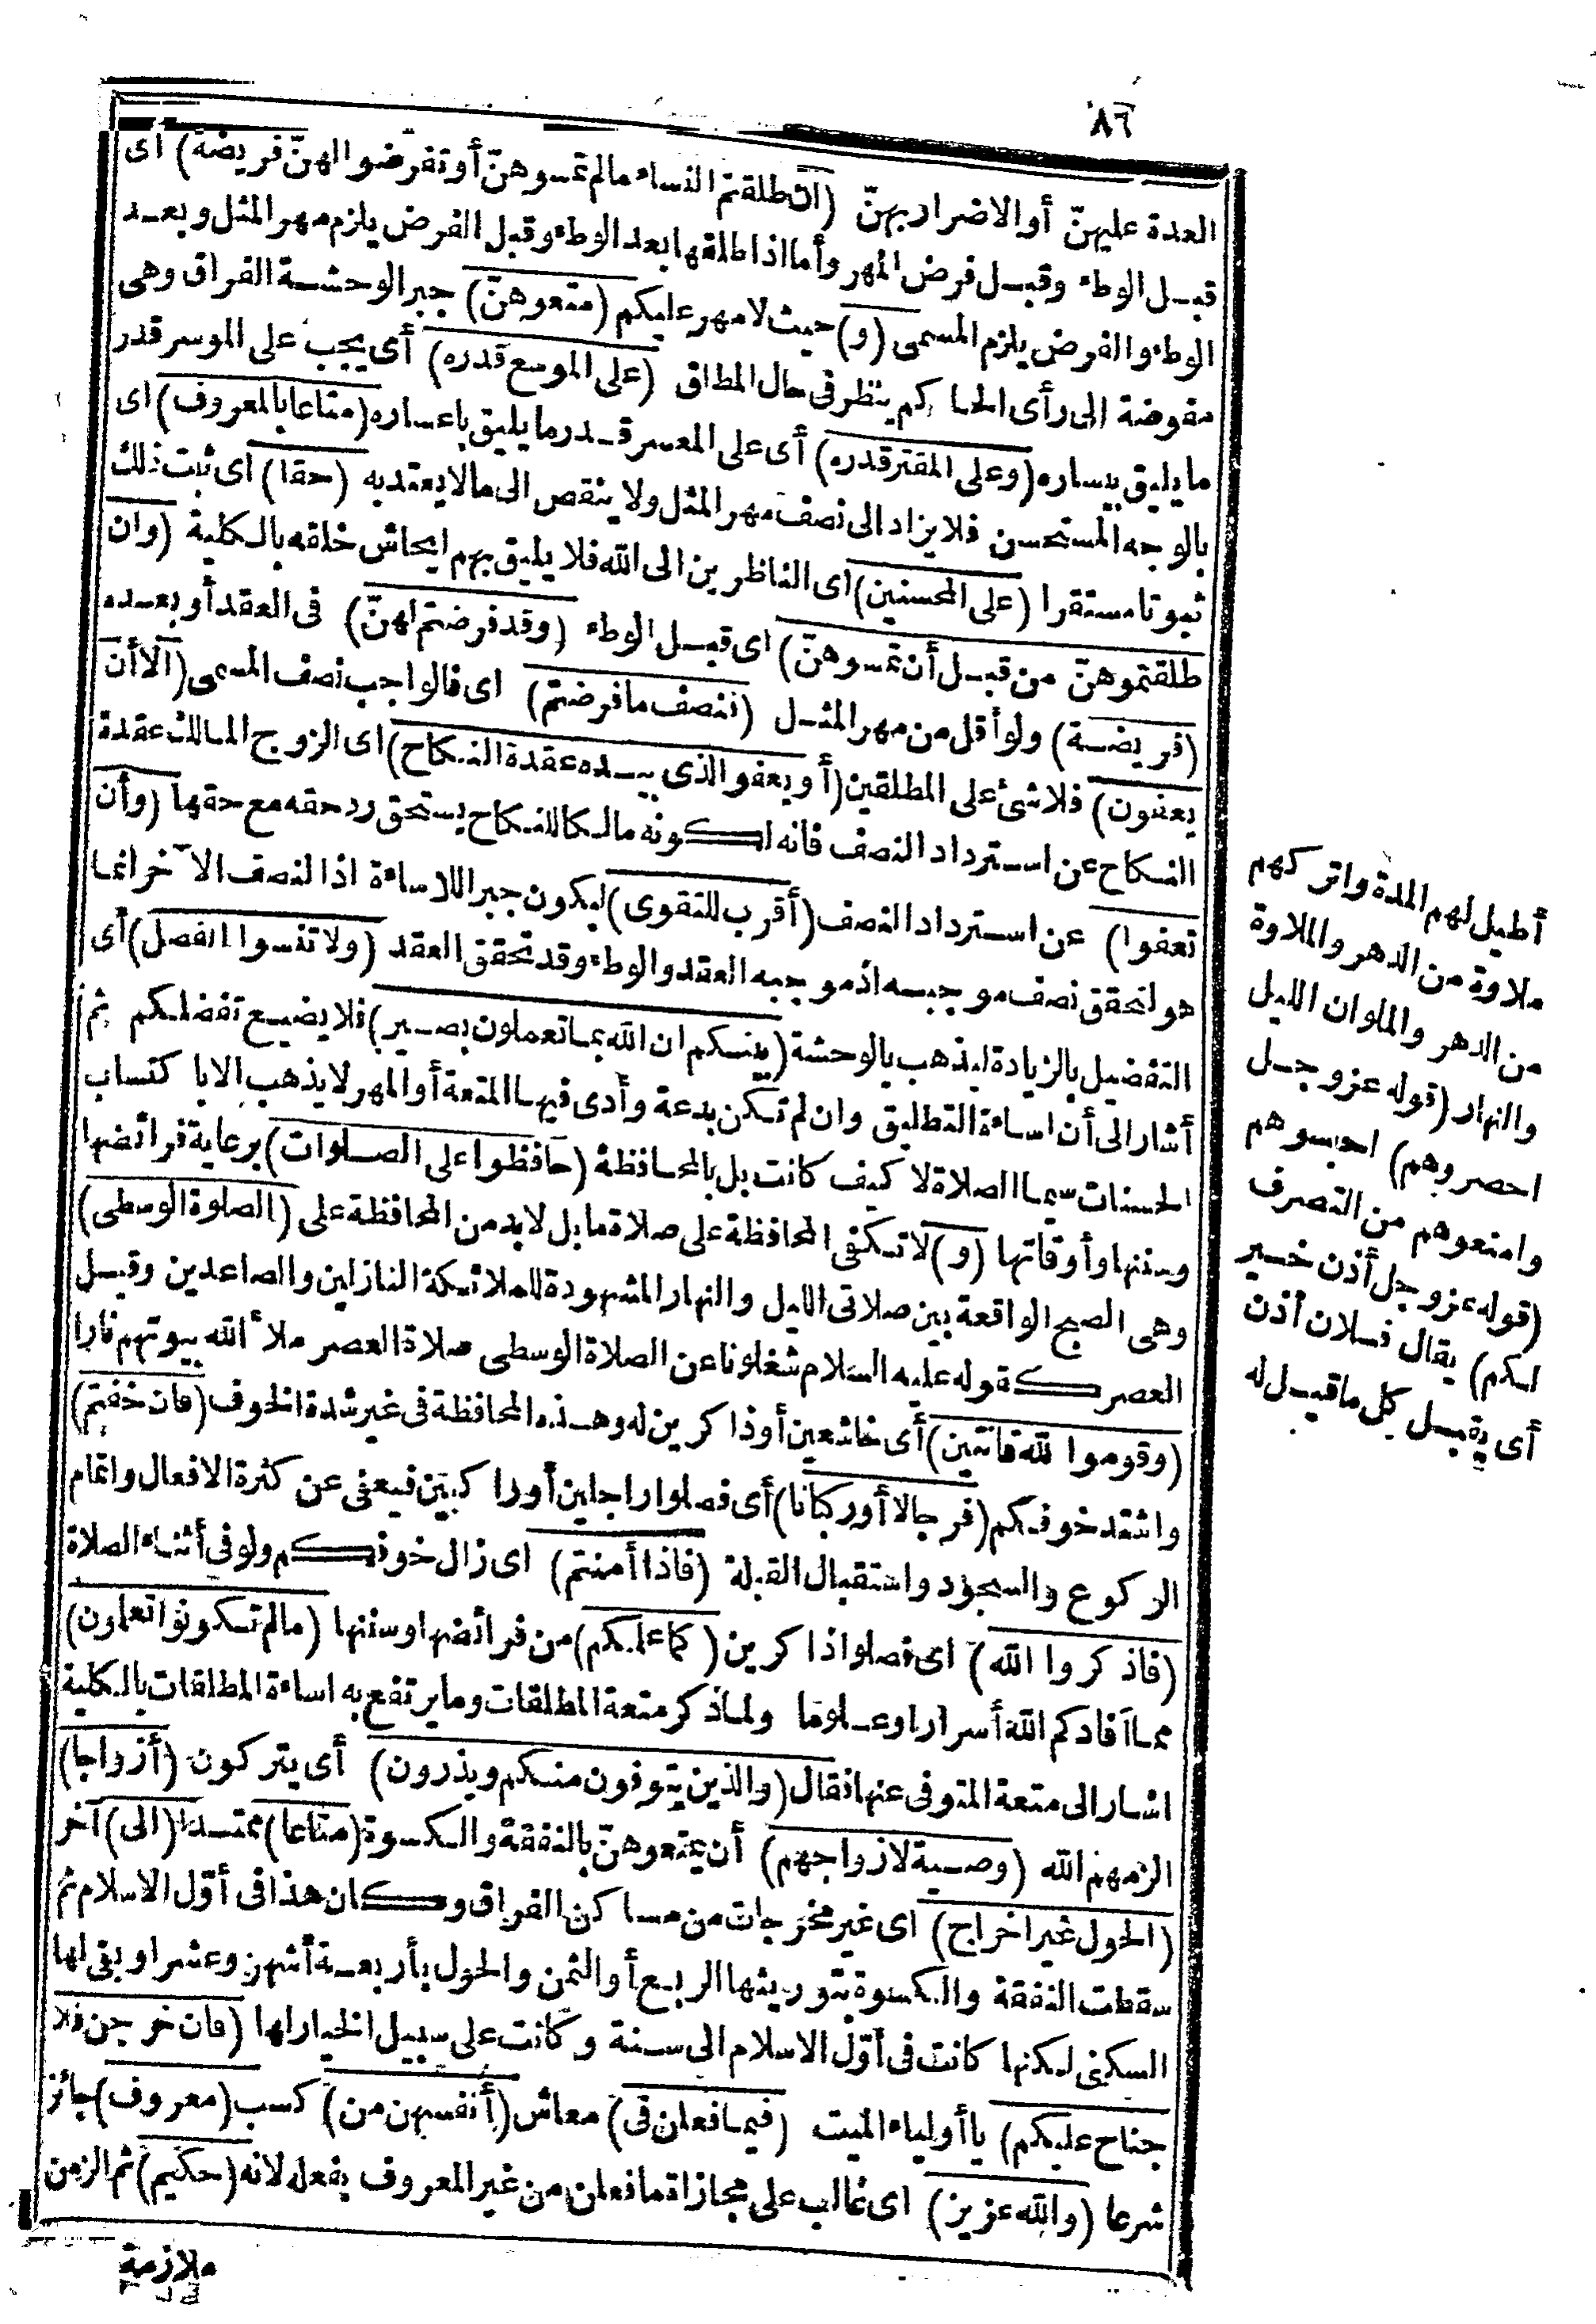 ٨٦
العدة عليهنّ أو الاضرار بهنّ (ان طلقتم النساء مالم تمسوهنّ أو تفرضوا لهنّ فريضة) اى
قبل الوطء وقبل فرض المهر وأما اذا طلقها بعد الوطء وقبل الفرض يلزم مهر المثل وبعد
الوطء والفرض يلزم المسمى (و) حيث لا مهر عليكم (متعوهنّ) جبر الوحشة الفراق وهى
مفوضة الى رأى الحاكم ينظر فى حال المطلق (على الموسع قدره) أى يجب على الموسر قدر
ما يليق بيساره (وعلى المقتر قدره) أى على المعسر قدر ما يليق باعساره (متاعا بالمعروف) اى
بالوجه المستحسن فلا يزاد الى نصف مهر المثل ولا ينقص الى مالا يعتد به (حقا) اى ثبت ذلك
ثبوتا مستقرا (على المحسنين) اى الناظرين الى الله فلا يليق بهم ايحاش خلقه بالكلية (وان
طلقتموهنّ من قبل أن تمسوهنّ) اى قبل الوطء (وقد فرضتم لهنّ) فى العقد أو بعده
(فريضة) ولو أقل من مهر المثل (فنصف ما فرضتم) اى فالواجب نصف المسمى (الا أن
يعفون) فلا شئ على المطلقين (أو يعفو الذى بيده عقدة النكاح) اى الزوج المالك عقدة
النكاح عن استرداد النصف فانه لكونه مالكا للنكاح يستحق رد حقه مع حقها (وأن
تعفوا) عن استرداد النصف (أقرب للتقوى) ليكون جبرا للاساءة اذ النصف الآخر انما
هو لتحقق نصف موجبه اذ موجبه العقد والوطء وقد تحقق العقد (ولا تنسوا الفضل) أى
التفضيل بالزيادة ليذهب بالوحشة (بينكم ان الله بما تعملون بصير) فلا يضيع تفضلكم ثم
أشار الى أن اساءة التطليق وان لم تكن بدعة وأدى فيها المتعة أو المهر لا يذهب الا باكتساب
الحسنات سيما الصلاة لا كيف كانت بل بالمحافظة (حافظوا على الصلوات) برعاية فرائضها
وسننها وأوقاتها (و) لا تكفى المحافظة على صلاة ما بل لا بد من المحافظة على (الصلوة الوسطى)
وهى الصبح الواقعة بين صلاتى الليل والنهار المشهودة للملائكة النازلين والصاعدين وقيل
العصر كقوله عليه السلام شغلونا عن الصلاة الوسطى صلاة العصر ملأ الله بيوتهم نارا
(وقوموا لله قانتين) أى خاشعين أو ذاكرين له وهذه المحافظة فى غير شدة الخوف (فان خفتم)
واشتد خوفكم (فرجالا أو ركبانا) أى فصلوا راجلين أو راكبين فيعفى عن كثرة الافعال واتمام
الركوع والسجود واستقبال القبلة (فاذا أمنتم) اى زال خوفكم ولو فى أثناء الصلاة
(فاذكروا الله) اى فصلوا ذاكرين (كما علمكم) من فرائضها وسننها (مالم تكونوا تعلمون)
مما آفادكم الله أسرارا وعلوما ولما ذكر متعة المطلقات وما يرتفع به اساءة المطلقات بالكلية
اشار الى متعة المتوفى عنها فقال (والذين يتوفون منكم ويذرون) أى يتركون (أزواجا)
الزمهم الله (وصية لازواجهم) أن يمتعوهنّ بالنفقة والكسوة (متاعا) ممتدا (الى) آخر
(الحول غير اخراج) اى غير مخرجات من مساكن الفراق وكان هذا فى أوّل الاسلام ثم
سقطت النفقة والكسوة بتوريثها الربع أو الثمن والحول بأربعة أشهر وعشرا وبقى لها
السكنى لكنها كانت فى أوّل الاسلام الى سنة وكانت على سبيل الخيار لها (فان خرجن فلا
جناح عليكم) يا أولياء الميت (فيما فعلن فى) معاش (أنفسهن من) كسب (معروف) جائز
شرعا (والله عزيز) اى غالب على مجازاة ما فعلن من غير المعروف يفعله لانه (حكيم) ثم الزمن
ملازمة
أطيل لهم المدة واتركهم
ملاوة من الدهر والملاوة
من الدهر والملوان الليل
والنهار (قوله عز وجل
احصروهم) احبسوهم
وامنعوهم من التصرف
(قوله عز وجل أذن خير
لكم) يقال فلان أذن
أى يقبل كل ما قيل له